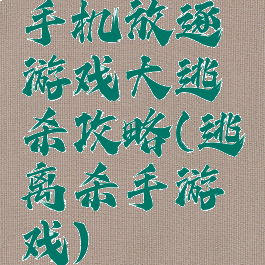 手机放逐
游戏大逃
杀攻略(逃
离杀手游
戏)